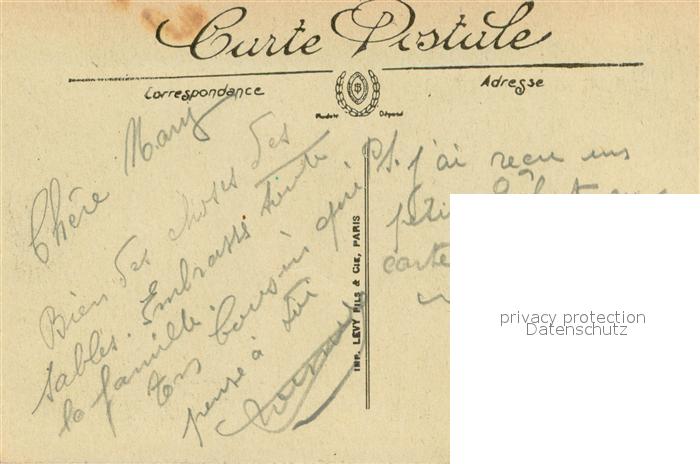 Carte Postale
Correspondance
Adresse
Modèle Déposé
Chère Mary
Bien des choses des
Sables. Embrasse toute
la famille.
Ton Cousin qui
pense à toi
IMP. LEVY FILS & CIE, PARIS
PS. j'ai reçu une
carte
privacy protection
Datenschutz